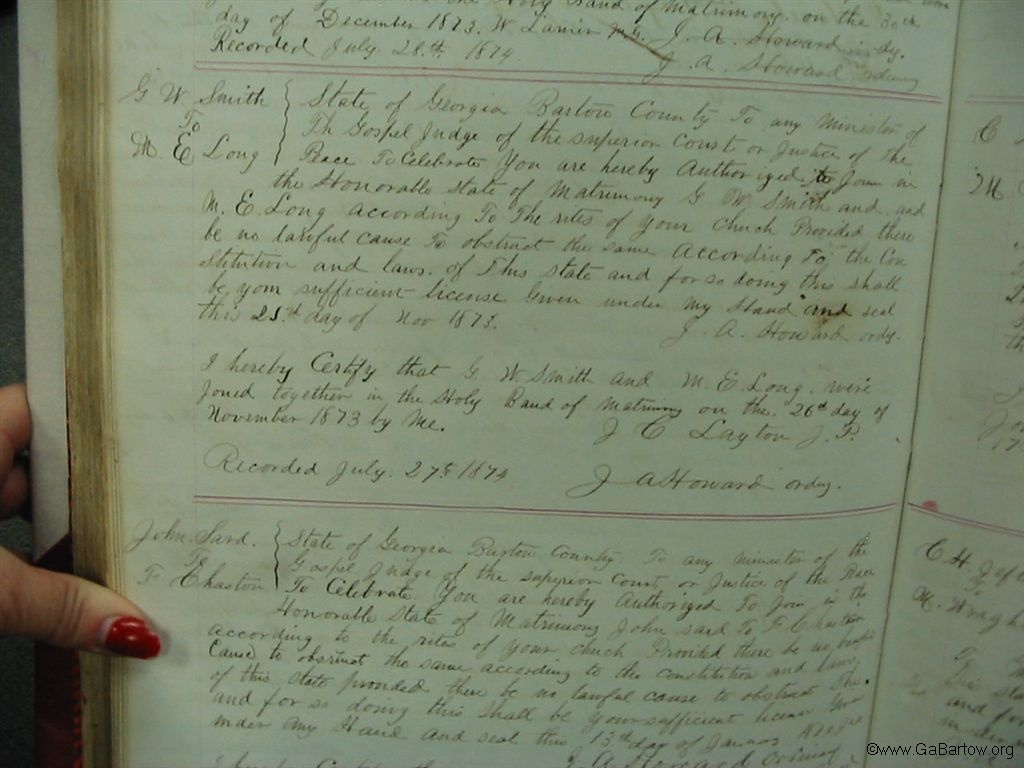 the Holy Band of Matrimony. on the 30th
day of December 1873. W. Lanier M.G. J. A. Howard Ordy.
Recorded July. 28th 1874. J. A. Howard ordiny
G W Smith
To
M. E Long
State of Georgia Bartow County To any Minister of
Th Gospel Judge of the superior Court or Justice of The
Peace To Celebrate You are hereby Authorized to Join in
the Honorable state of Matrimony G W. Smith and and
M. E. Long according To The rites of your Chuch Provided there
be no lawful cause To obstruct the same According To the Con
stitution and laws. of This state and for so doing this shall
be your sufficient license Given under my Hand and seal
this 25th day of Nov 1873. J. A. Howard ordy.
I hereby Certify that G. W. Smith and M. E. Long. were
Joned together in the Holy Band of Matrimony on the. 26th day of
November 1873 by Me. J C Layton J. P.
Recorded July. 27th 1874 J A Howard ordny.
John Sard.
To
F Chaston
State of Georgia Bartow County. To any Minister of the
Gospel Judge of the superior Court or Justice of the Peace
To Celebrate You are hereby Authorized To Join in the
Honorable State of Matrimony John sard To F Chaston
according to the rites of your church Provided there be no lawful
Cause to obstruct the same according to the constitution and laws
of this state provided there be no lawful cause to obstruct The
and for so doing this shall be your sufficient license Given
under my Hand and seal this 13th day of January
J. A. Howard Ordinary
C. H
To
M. Wragh
©www.GaBartow.org